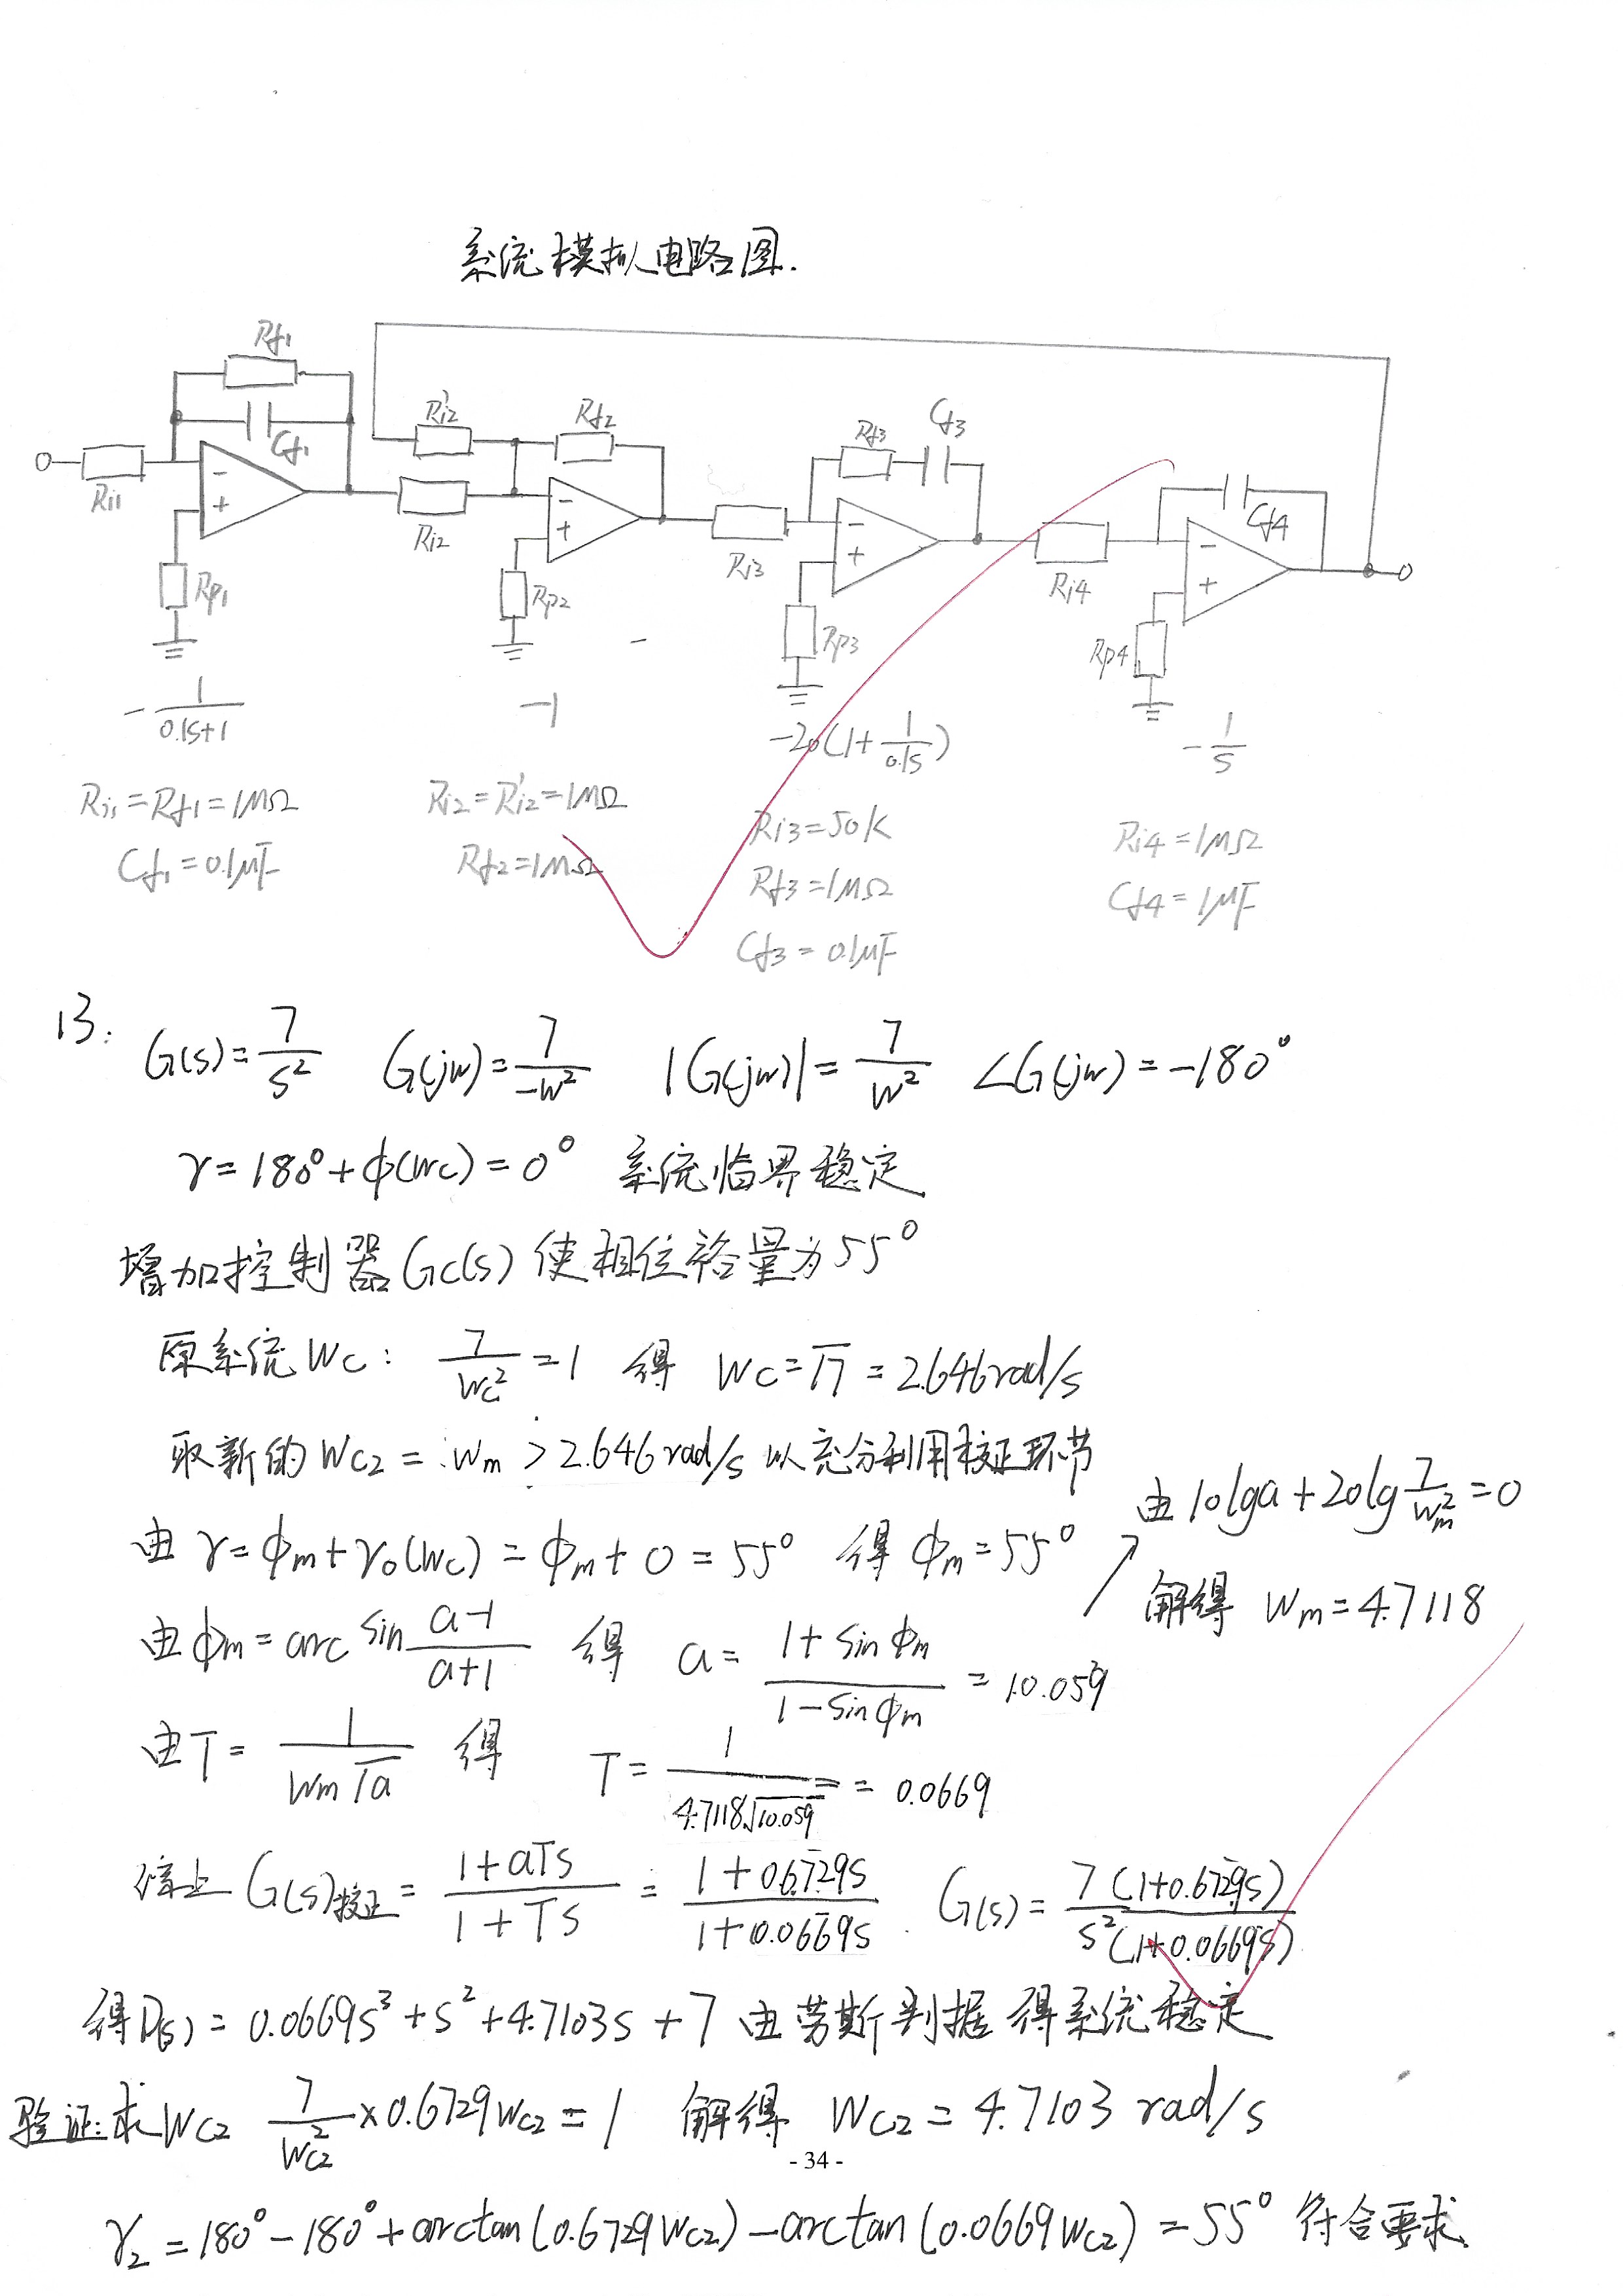 系统模拟电路图.
Rf1
Cf1
Ri1
Rp1
R'i2
Rf2
Ri2
Rp2
Rf3
Cf3
Ri3
Rp3
Cf4
Ri4
Rp4
-1/(0.1s+1)
-1
-20(1+1/0.1s)
-1/s
Ri1=Rf1=1MΩ
Cf1=0.1μF
Ri2=R'i2=1MΩ
Rf2=1MΩ
Ri3=50K
Rf3=1MΩ
Cf3=0.1μF
Ri4=1MΩ
Cf4=1μF
13: G(s)=7/s² G(jw)=7/-w² |G(jw)|=7/w² ∠G(jw)=-180°
γ=180°+φ(wc)=0° 系统临界稳定
增加控制器Gc(s)使相位裕量为55°
原系统wc: 7/wc²=1 得 wc=√7=2.646rad/s
取新的wc2=wm>2.646rad/s以充分利用校正环节
由γ=φm+γ0(wc)=φm+0=55° 得φm=55°
由φm=arc sin (a-1)/(a+1) 得 a=(1+sinφm)/(1-sinφm)=10.059
由10lga+20lg 7/wm²=0
解得 wm=4.7118
由T=1/(wm√a) 得 T=1/(4.7118√10.059)=0.0669
综上G(s)校正=(1+aTs)/(1+Ts)=(1+0.6729s)/(1+0.0669s). G(s)=7(1+0.6729s)/s²(1+0.0669s)
得D(s)=0.0669s³+s²+4.7103s+7 由劳斯判据得系统稳定
验证:求wc2 7/wc2²×0.6729wc2=1 解得 wc2=4.7103 rad/s
-34-
γ2=180°-180°+arctan(0.6729wc2)-arctan(0.0669wc2)=55° 符合要求.